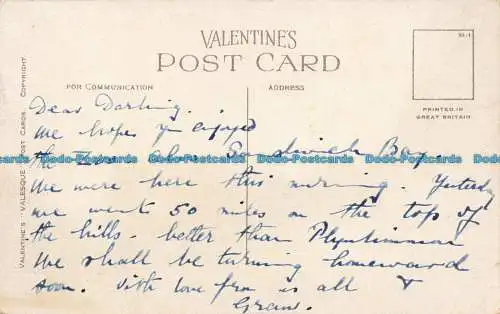 VALENTINES
POST CARD
FOR COMMUNICATION
ADDRESS
55.1
PRINTED IN
GREAT BRITAIN
VALENTINE'S "VALESQUE" POST CARDS. COPYRIGHT
Dear Darling.
We hope you enjoyed
the Zoo also Sandwich Bay.
Dado-Postcards Dado-Postcards Dado-Postcards Dado-Postcards Dado-Postcards Dado-Postcards
We were here this morning. Yesterday
we went 50 miles on the top of
the hills - better than Plynlimmon
We shall be turning homeward
soon. With love from us all &
Gran.